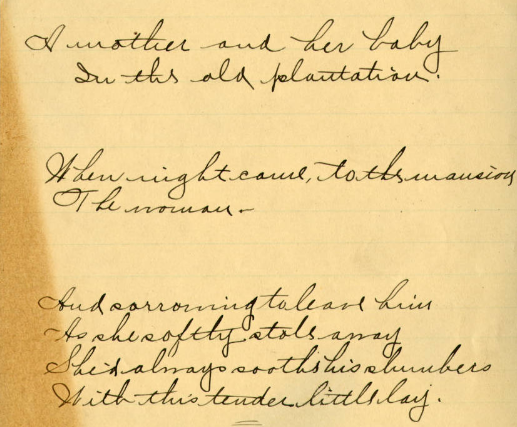 A mother and her baby
In the old plantation.
When night came, to the mansion
The woman -
And sorrowing to leave him
As she softly stole away
She'd always soothe his slumbers
With this tender little lay.